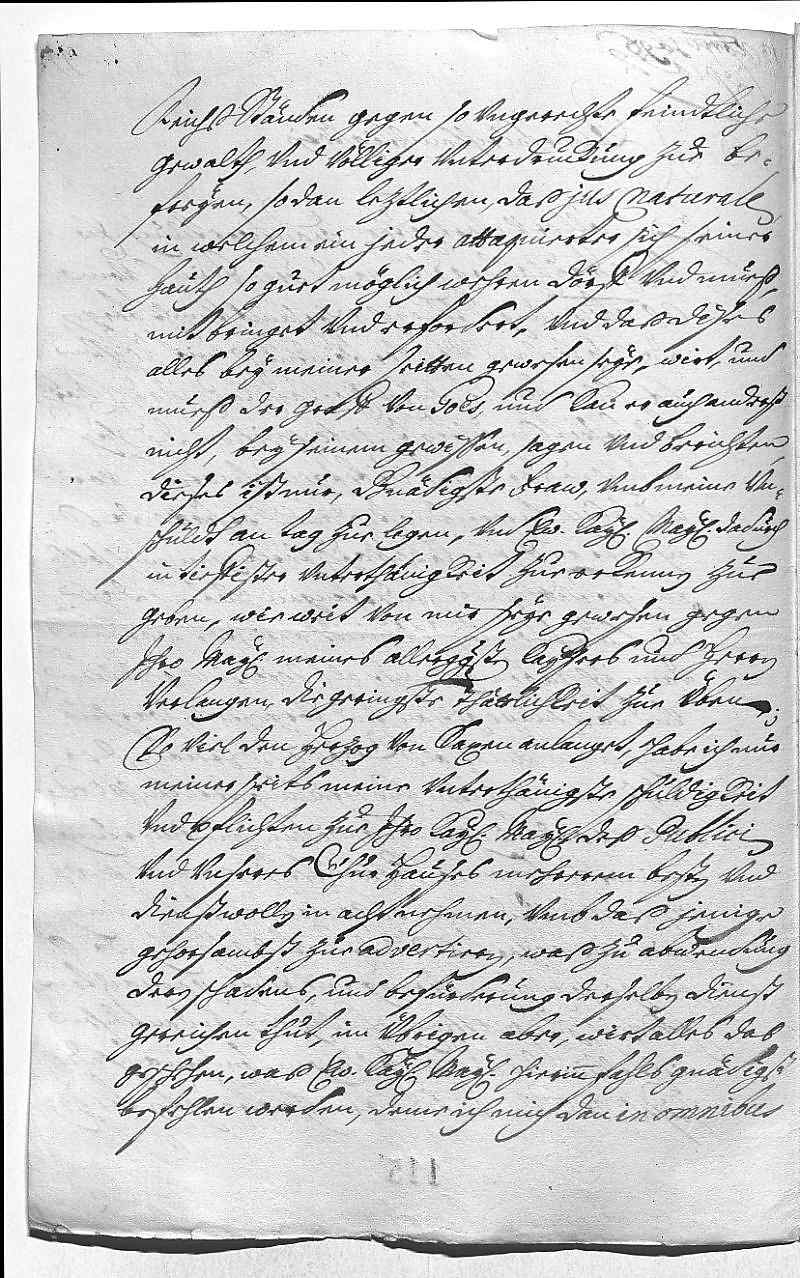 Reichs Ständen gegen so Ungerechte feindtliche
gewalth, Vnd Völliger Unterdruckung zue be-
sorgen, so dan letztlichen, daß jus naturale,
in welchem ein jeder attaquierter sich seiner
hauth so guet möglich wehren dörff Vnd mueß,
mit bringet Vnd erfordert, Vnd daß dises
alles bey meiner seitten gewesen seye, wirt, und
mueß der graff Von Goes, und kan er auch anderst
nicht, bey seinem gewissen, sagen Vnd berichten,
dieses ist nur, Gnädigste Fraw, Vmb meine Vn-
schuldt an tag zue legen, Vnd Ew. Kayl. Mayl. dadurch
in tieffister Unterthänigkeit zue erkennen zue
geben, wie weit Von mir seye gewesen gegen
Ihro Mayl. meines allergste Kaysers und Herrn
Verlangen, die geringste thätlichkeit zue Üben;
So Viel den Herzog Von Saxen anlanget, habe ich nur
meiner seits meine Unterthänigste schuldigkeit
Vnd pflichten zue Ihro Kayl. Mayl. deß Publici
Vnd Unseres Chur Hauses mehrerem besten Vnd
dienst wollen in acht nehmen, Vmb daß jenige
gehorsambst zue advertirn, waß zu abwendung
dern schadens, und befürderung derselben dienst
gereichen thut, im Übrigen aber, wirt alles das
geschehen, was Ew. Kayl. Mayl. hierinfahls gnädigst
befehlen werden, deme ich mich dan in omnibus